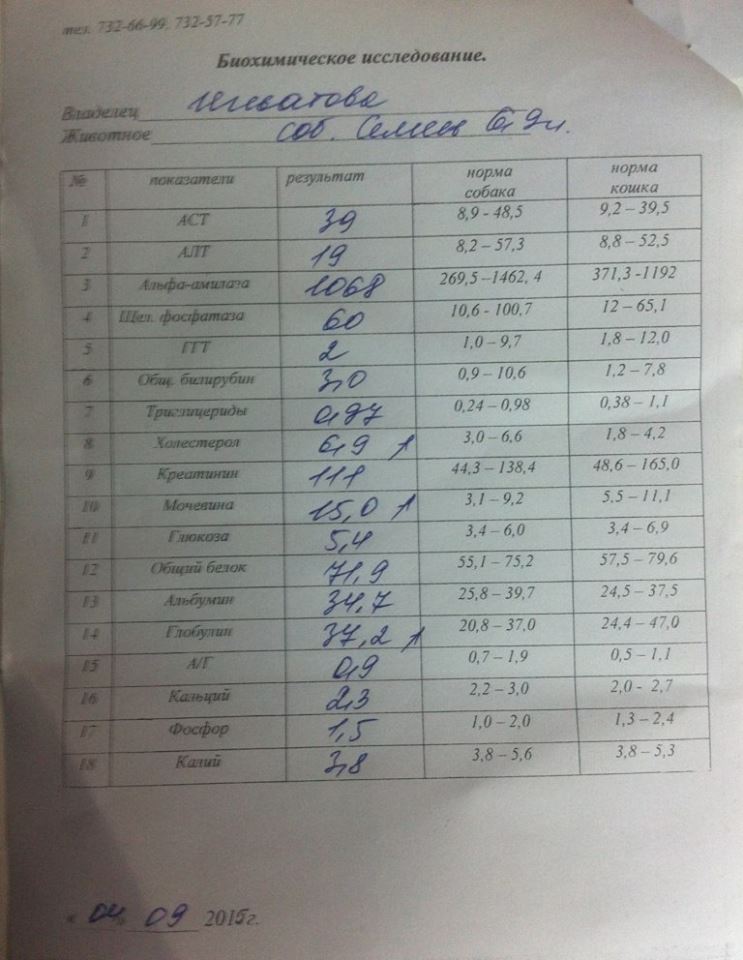 тел. 732-66-99, 732-57-77
Биохимическое исследование.
Владелец
Животное соб.
№ показатели результат норма собака норма кошка
1 АСТ 39 8,9 - 48,5 9,2 – 39,5
2 АЛТ 19 8,2 – 57,3 8,8 – 52,5
3 Альфа-амилаза 1068 269,5 –1462, 4 371,3 -1192
4 Щел. фосфатаза 60 10,6 - 100,7 12 – 65,1
5 ГГТ 2 1,0 – 9,7 1,8 – 12,0
6 Общ. билирубин 3,0 0,9 – 10,6 1,2 – 7,8
7 Триглицериды 0,97 0,24 – 0,98 0,38 – 1,1
8 Холестерол 6,9 ↑ 3,0 – 6,6 1,8 – 4,2
9 Креатинин 111 44,3 – 138,4 48,6 – 165,0
10 Мочевина 15,0 ↑ 3,1 – 9,2 5,5 – 11,1
11 Глюкоза 5,4 3,4 – 6,0 3,4 – 6,9
12 Общий белок 71,9 55,1 – 75,2 57,5 – 79,6
13 Альбумин 34,7 25,8 – 39,7 24,5 – 37,5
14 Глобулин 37,2 ↑ 20,8 – 37,0 24,4 – 47,0
15 А/Г 0,9 0,7 – 1,9 0,5 – 1,1
16 Кальций 2,3 2,2 – 3,0 2,0 - 2,7
17 Фосфор 1,5 1,0 – 2,0 1,3 – 2,4
18 Калий 3,8 3,8 – 5,6 3,8 – 5,3
« 04 » 09 2015г.